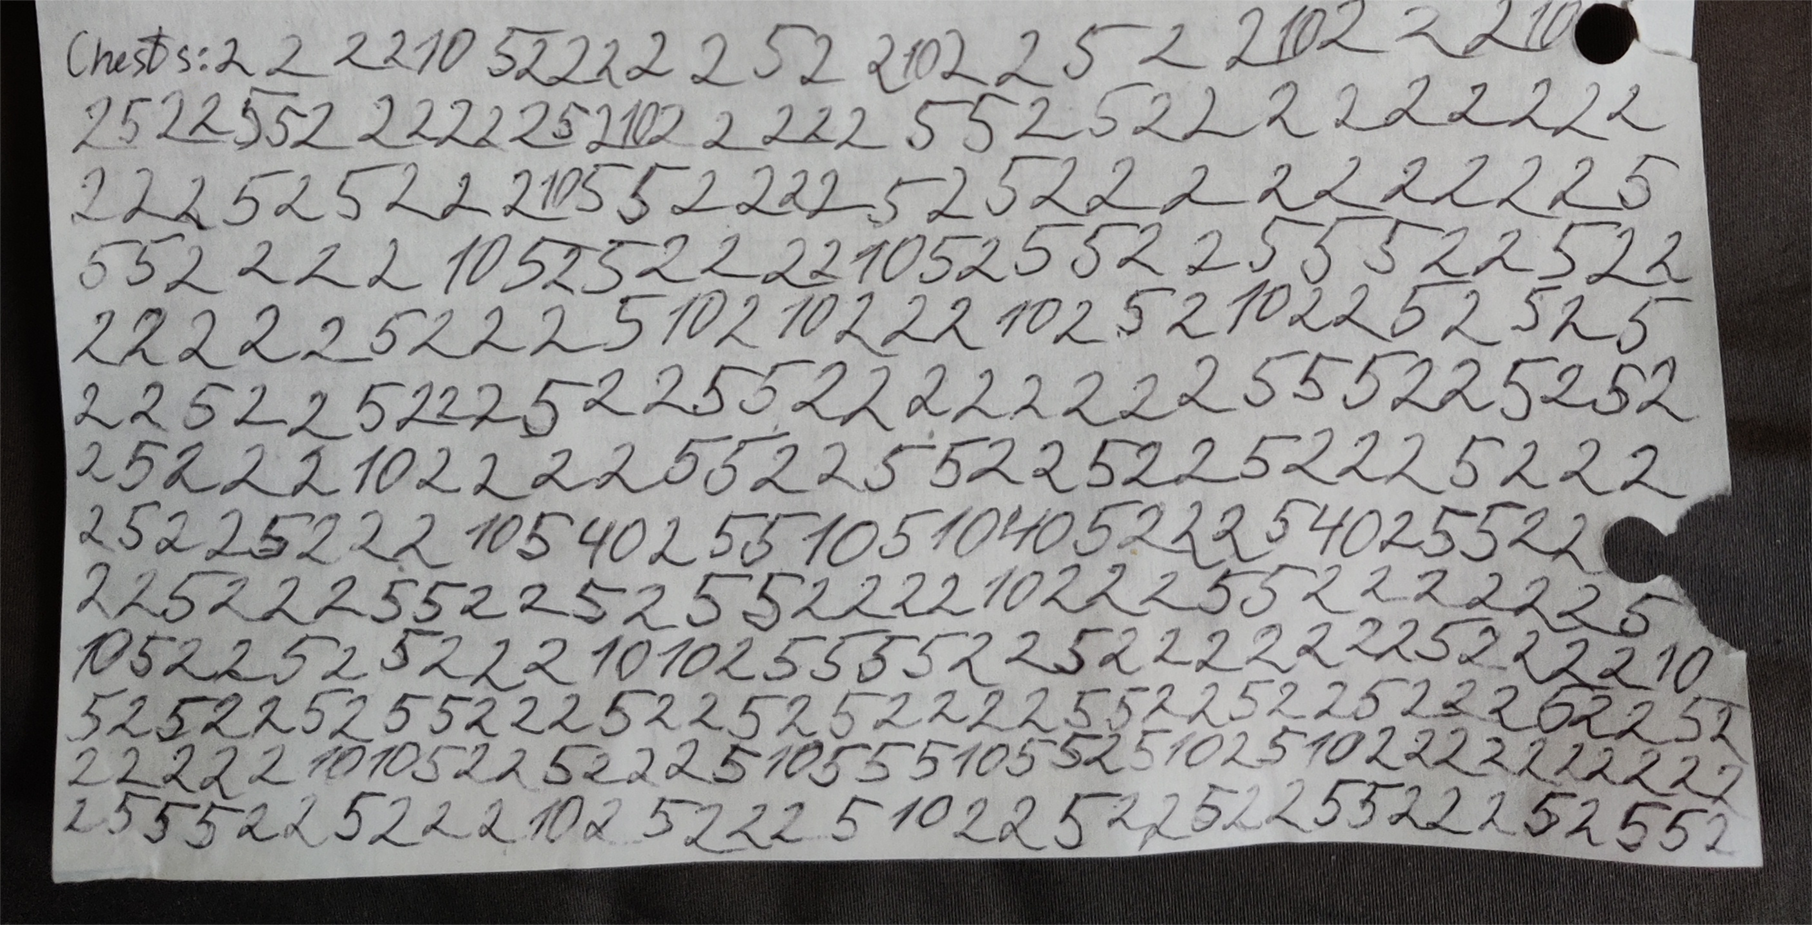 Chests: 2 2 2 2 10 5 2 2 2 2 2 5 2 2 10 2 2 5 2 2 10 2 2 2 10
2 5 2 2 5 5 2 2 2 2 2 2 5 2 10 2 2 2 2 2 5 5 2 5 2 2 2 2 2 2 2 2 2
2 2 2 5 2 5 2 2 2 10 5 5 2 2 2 2 5 2 5 2 2 2 2 2 2 2 2 2 2 5
5 5 2 2 2 2 10 5 2 5 2 2 2 2 10 5 2 5 5 2 2 5 5 5 2 2 5 2 2
2 2 2 2 2 5 2 2 2 5 10 2 10 2 2 2 10 2 5 2 10 2 2 5 2 5 2 5
2 2 5 2 2 5 2 2 2 5 2 2 5 5 2 2 2 2 2 2 2 5 5 5 2 2 5 2 5 2
2 5 2 2 2 10 2 2 2 2 5 5 2 2 5 5 2 2 5 2 2 5 2 2 2 5 2 2 2
2 5 2 2 5 2 2 2 10 5 40 2 5 5 10 5 10 40 5 2 2 2 5 40 2 5 5 2 2
2 2 5 2 2 2 5 5 2 2 5 2 5 5 2 2 2 2 10 2 2 2 5 5 2 2 2 2 2 2 5
10 5 2 2 5 2 5 2 2 2 10 10 2 5 5 5 5 2 2 5 2 2 2 2 2 2 2 5 2 2 2 2 10
5 2 5 2 2 5 2 5 5 2 2 2 5 2 2 5 2 5 2 2 2 2 5 5 2 2 5 2 2 5 2 2 2 5 2 2 5 2
2 2 2 2 2 10 10 5 2 2 5 2 2 2 5 10 5 5 5 10 5 5 2 5 10 2 5 10 2 2 2 2 2 2 2 2 2
2 5 5 5 2 2 5 2 2 2 10 2 5 2 2 2 5 10 2 2 5 2 2 5 2 2 5 5 2 2 2 5 2 5 5 2